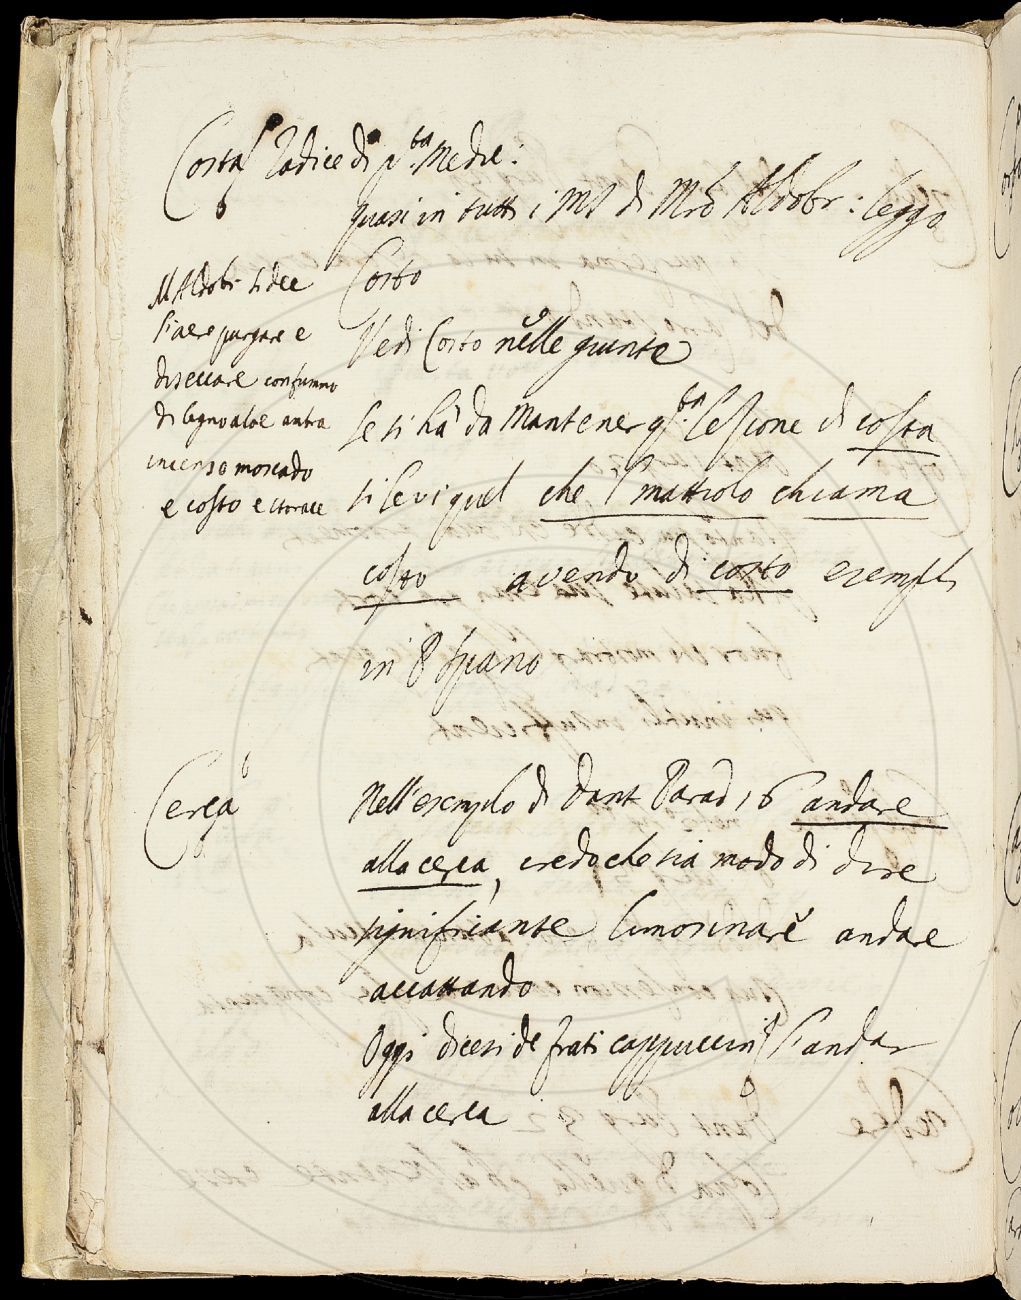 Costa Radice di q.ta Medic:
quasi in tutti i MS di Mro Aldobr: leggo
Costo
Vedi Costo nelle giunte
se si ha da Mantener q.ta lezione di costa
si levi quel che l mattiolo chiama
costo avendo di costo esempli
in P Spano
M Aldobr si dee
l'aere purgare e
diseccare con fummo
di legno aloe
incenso moscado
e costo e storace
Cerca
Nell'esemplo di Dant Parad 16 andare
alla cerca, credo che sia modo di dire
significante limosinare andare
accattando
Oggi dicesi de frati cappuccini l'andar
alla cerca